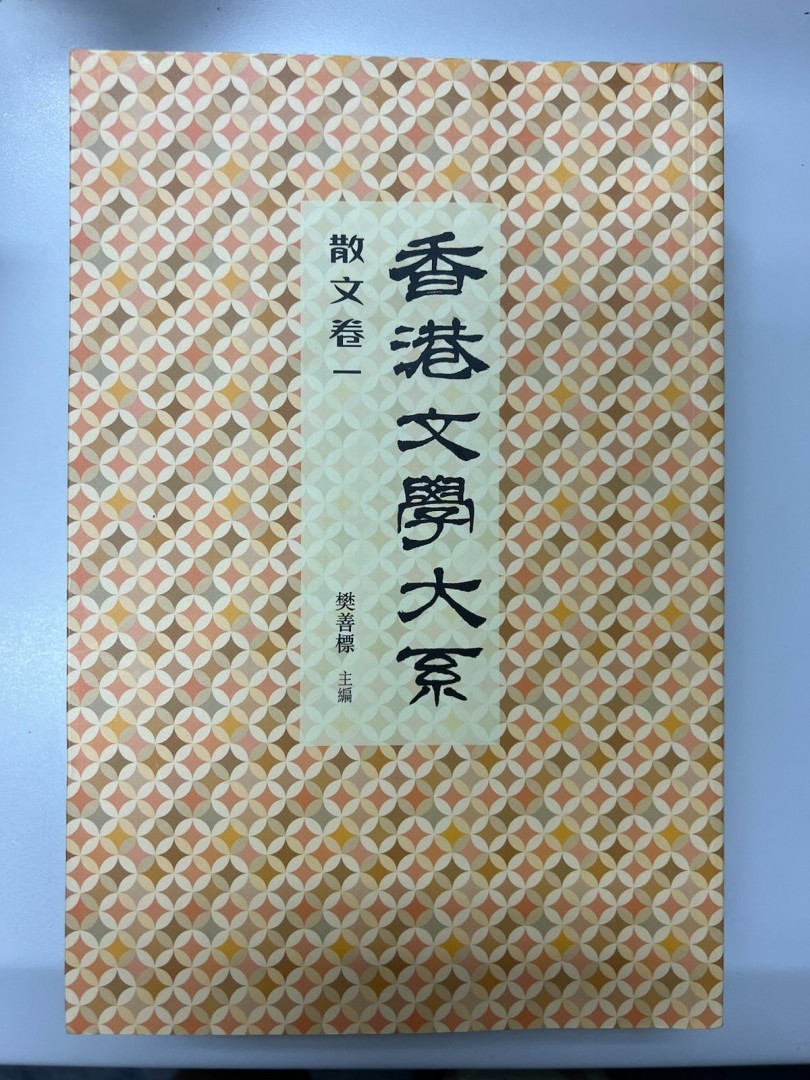 香港文學大系
散文卷一
樊善標 主編